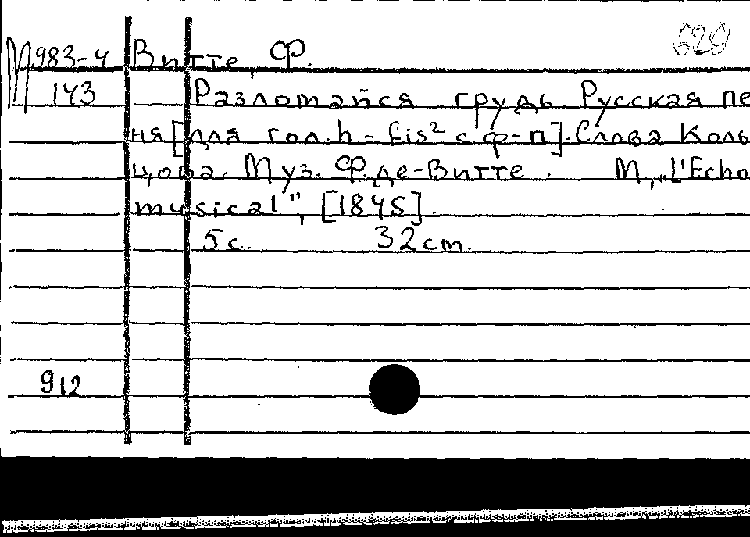 М983-4 Витте, Ф. 620
143 Разломайся грудь Русская пе
ня [для гол. h - fis² с ф-п]. Слова Коль
цова. Муз. Ф. де-Витте. М., „L'Echo
musical", [1845]
5 с. 32 cm.
912